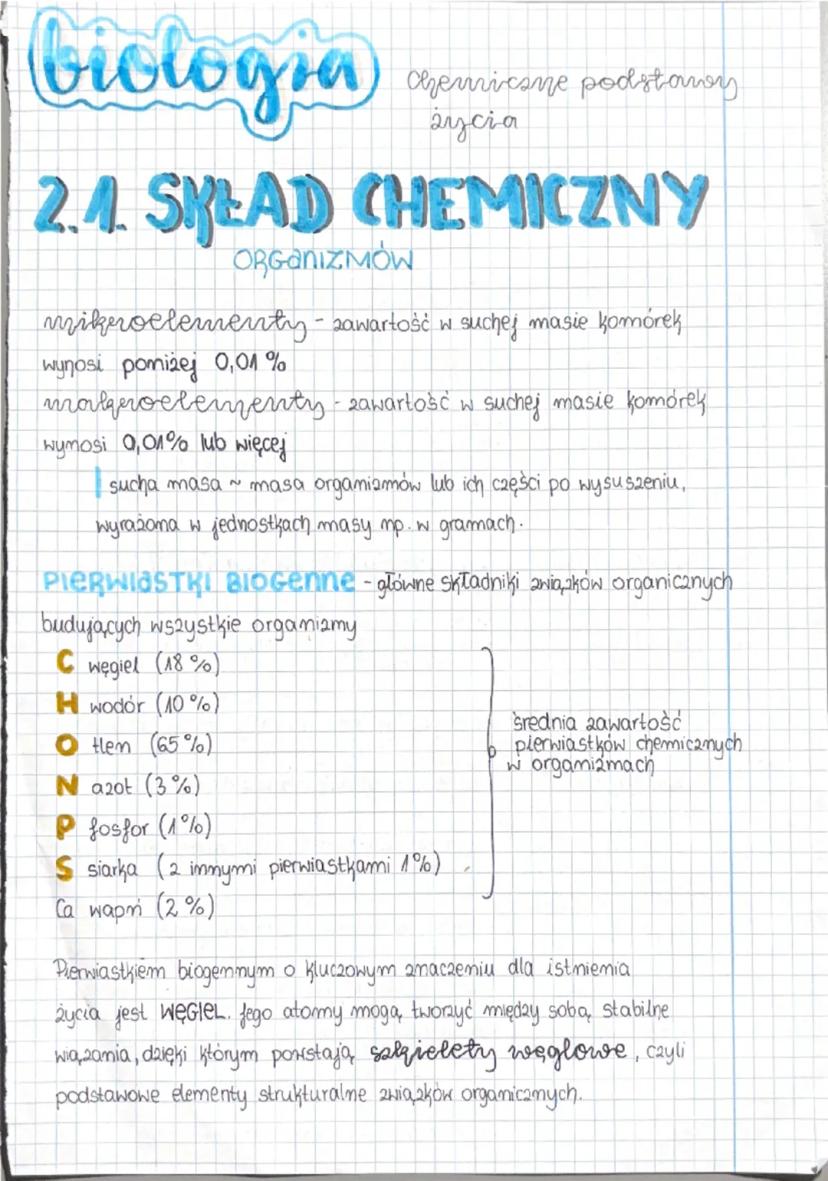 biologia
chemiczne podstawy
życia
2.1. SKŁAD CHEMICZNY
ORGANIZMÓW
mikroelementy - zawartość w suchej masie komórek
wynosi poniżej 0,01 %
makroelementy - zawartość w suchej masie komórek
wynosi 0,01% lub więcej
sucha masa ~ masa organizmów lub ich części po wysuszeniu,
wyrażona w jednostkach masy np. w gramach.
PIERWIASTKI BIOGENNE - główne składniki związków organicznych
budujących wszystkie organizmy
C węgiel (18 %)
H wodór (10 %)
O tlen (65 %)
N azot (3 %)
P fosfor (1 %)
S siarka (z innymi pierwiastkami 1%)
Ca wapń (2 %)
średnia zawartość
pierwiastków chemicznych
w organizmach
Pierwiastkiem biogennym o kluczowym znaczeniu dla istnienia
życia jest WĘGIEL. Jego atomy mogą tworzyć między sobą stabilne
wiązania, dzięki którym powstają szkielety węglowe, czyli
podstawowe elementy strukturalne związków organicznych.